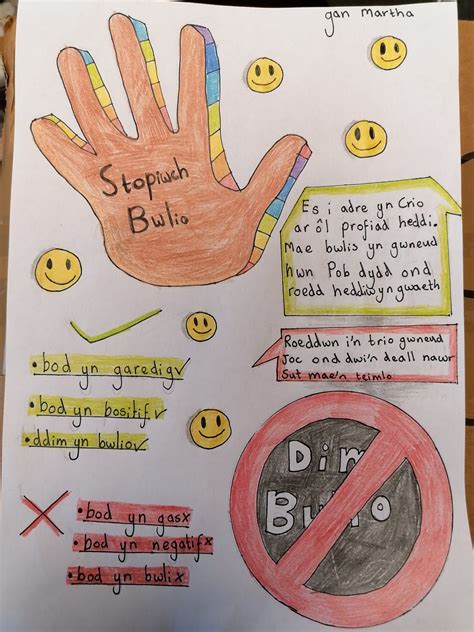 gan Martha
Stopiwch
Bwlio
Es i adre yn Crio
ar ôl profiad heddi.
Mae bwlis yn gwneud
hwn Pob dydd ond
roedd heddiw yn gwaeth
Roeddwn i'n trio gwneud
Joc ond dwi'n deall nawr
Sut mae'n teimlo
• bod yn garedig ✓
• bod yn bositif ✓
• ddim yn bwlio ✓
Dim
Bwlio
• bod yn gas x
• bod yn negatif x
• bod yn bwli x